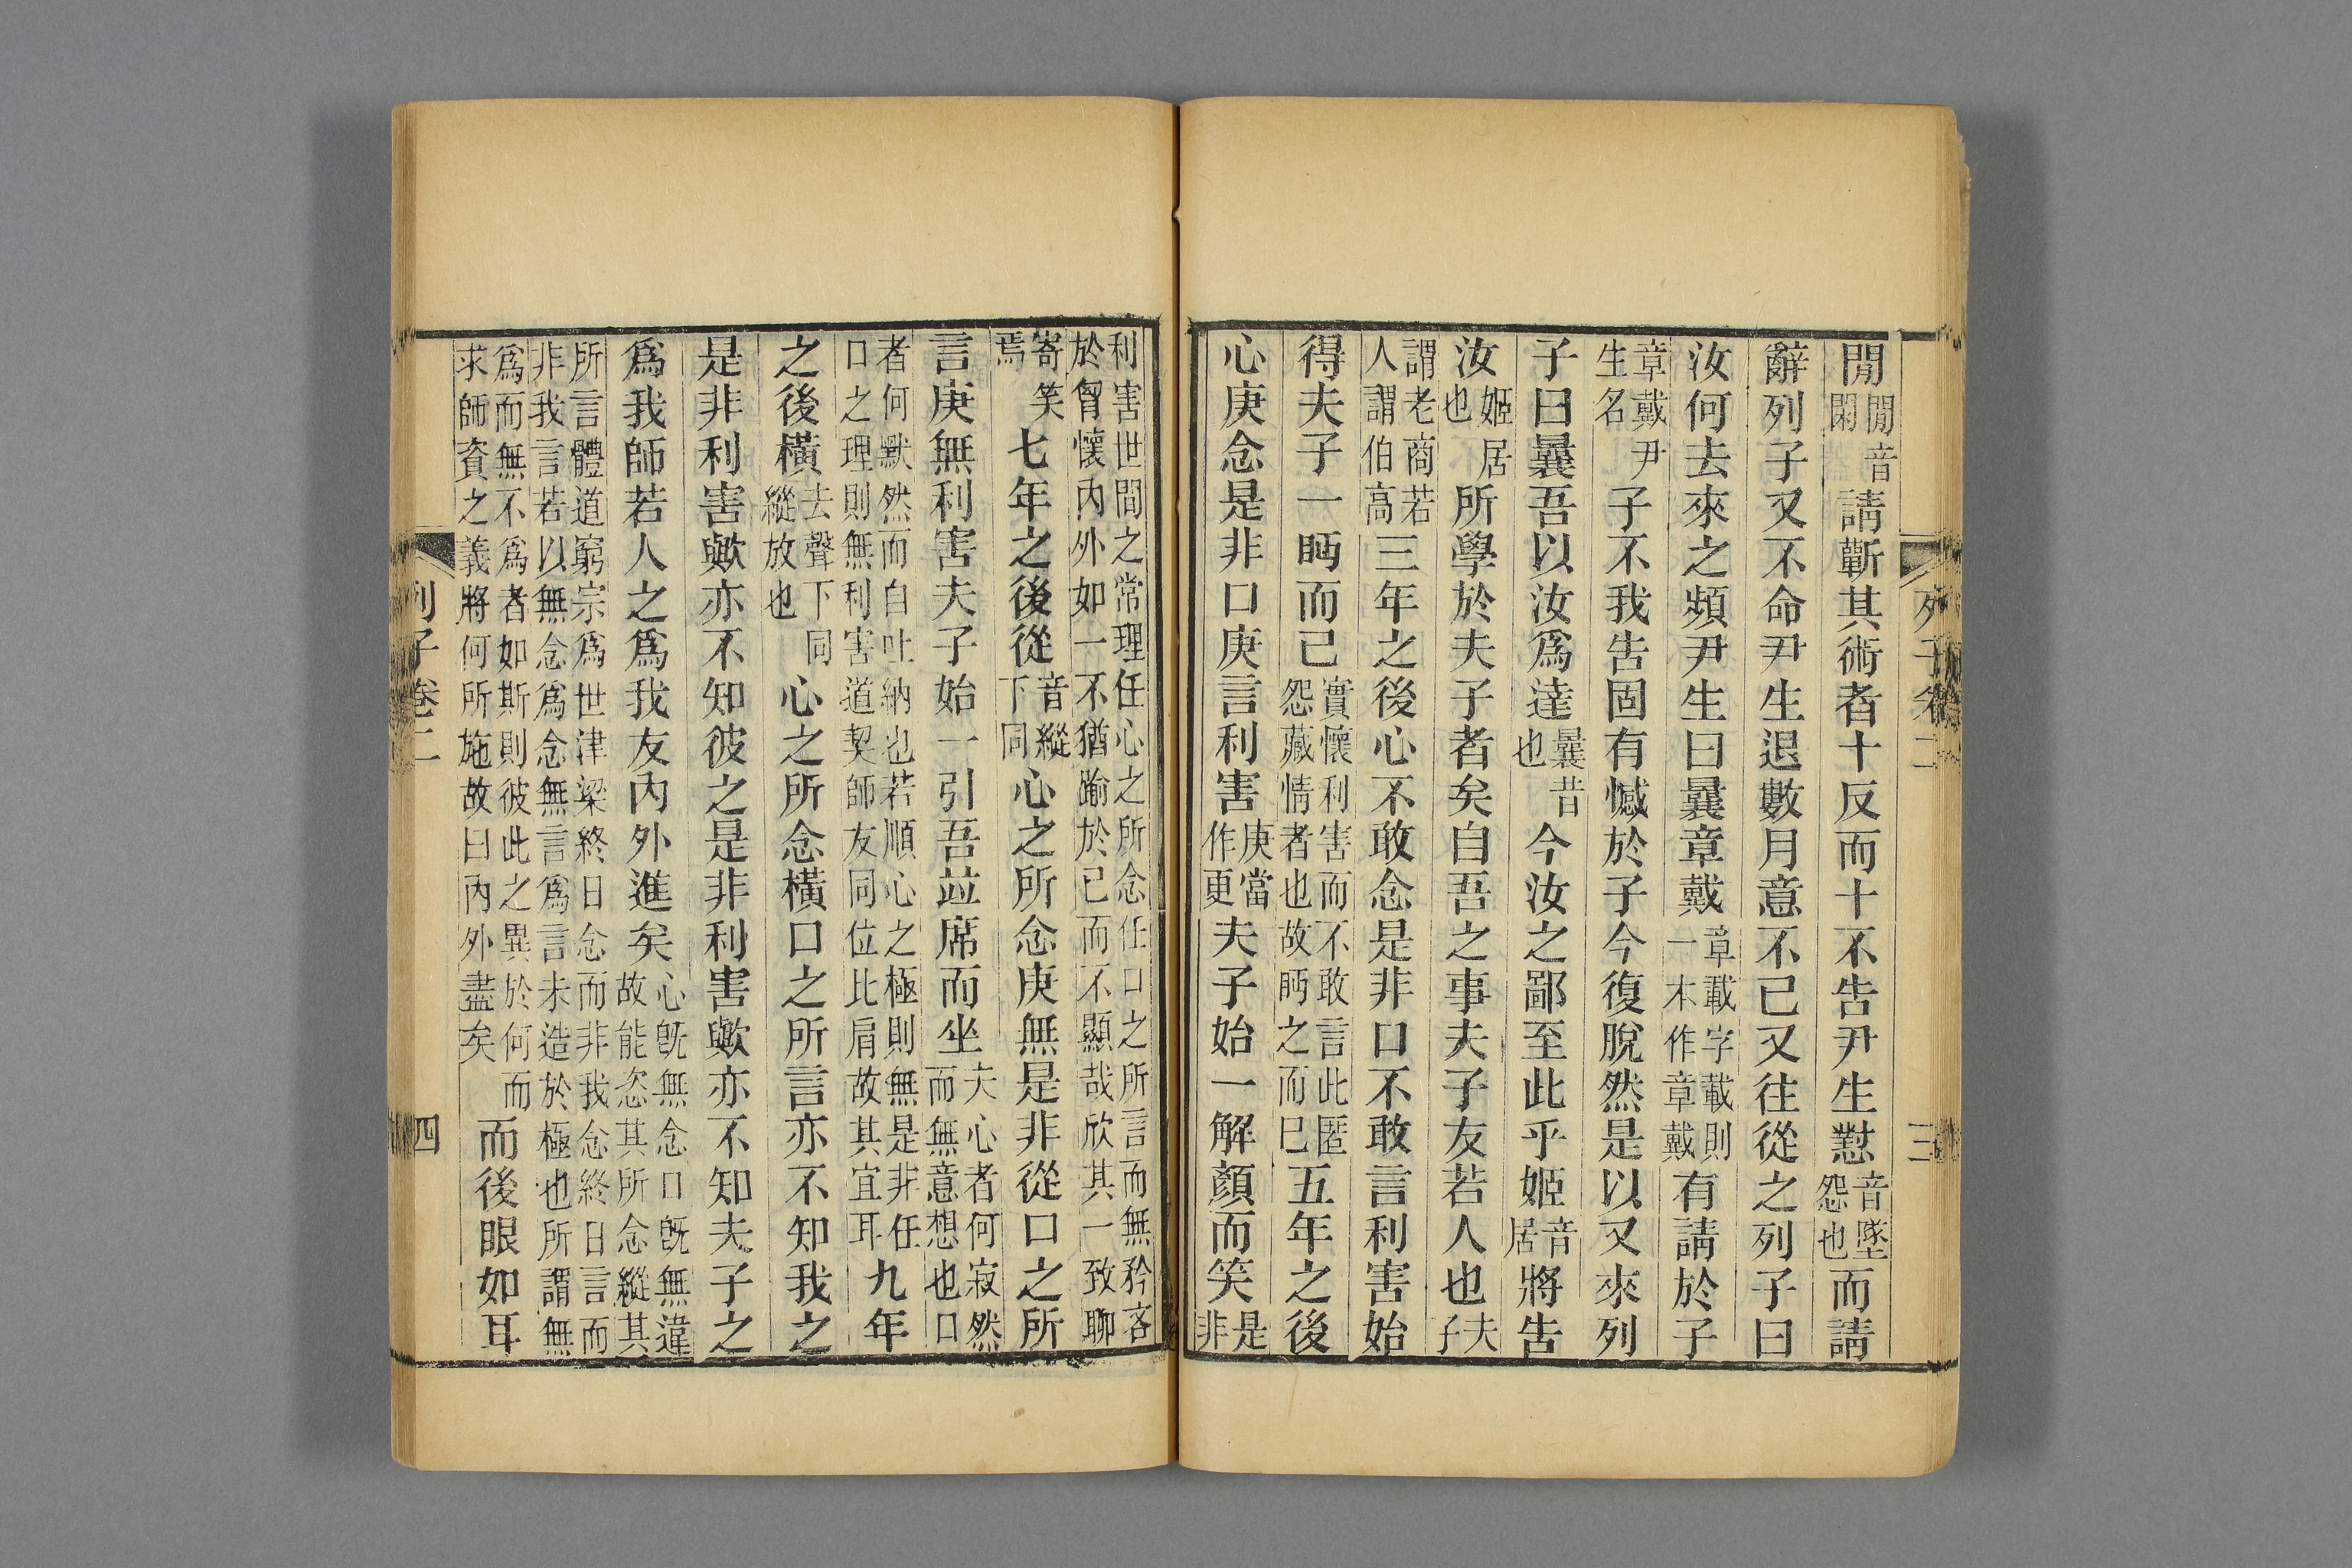 列子卷二
三
閒閒音閑請蘄其術者十反而十不告尹生懟音墜怨也而請
辭列子又不命尹生退數月意不已又往從之列子曰
汝何去來之頻尹生曰曩章戴章載字載則一本作章戴有請於子
章戴尹生名子不我告固有憾於子今復脫然是以又來列
子曰曩吾以汝爲達曩昔也今汝之鄙至此乎姬音居將告
汝姬居也所學於夫子者矣自吾之事夫子友若人也夫子
謂老商若人謂伯高三年之後心不敢念是非口不敢言利害始
得夫子一眄而已實懷利害而不敢言此匿怨藏情者也故眄之而已五年之後
心庚念是非口庚言利害庚當作更夫子始一解顏而笑是非
利害世間之常理任心之所念任口之所言而無矜吝於胷懷內外如一不猶踰於已而不顯哉欣其一致聊
寄笑焉七年之後從音縱下同心之所念庚無是非從口之所
言庚無利害夫子始一引吾竝席而坐夫心者何寂然而無意想也口
者何默然而自吐納也若順心之極則無是非任口之理則無利害道契師友同位比肩故其宜耳九年
之後橫去聲下同縱放也心之所念橫口之所言亦不知我之
是非利害歟亦不知彼之是非利害歟亦不知夫子之
爲我師若人之爲我友內外進矣心旣無念口旣無違故能恣其所念縱其
所言體道窮宗爲世津梁終日念而非我念終日言而非我言若以無念爲念無言爲言未造於極也所謂無
爲而無不爲者如斯則彼此之異於何而求師資之義將何所施故曰內外盡矣而後眼如耳
列子卷二
四